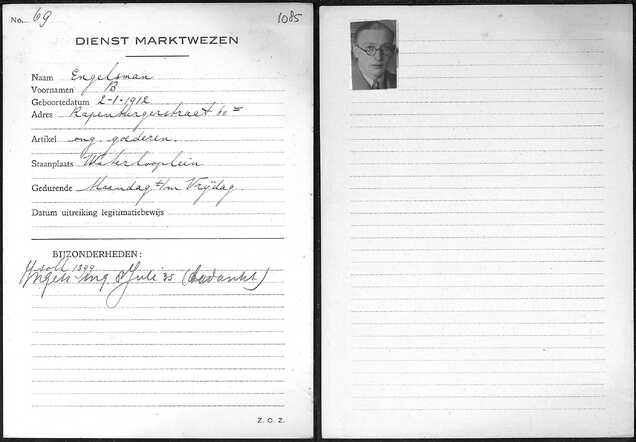 No. 69 1085
DIENST MARKTWEZEN
Naam Engelsman
Voornamen B
Geboortedatum 2-1-1912
Adres Rapenburgerstraat 60
Artikel ong. goederen.
Staanplaats Waterlooplein
Gedurende Maandag t/m Vrijdag
Datum uitreiking legitimatiebewijs
BIJZONDERHEDEN:
soll 1399
ing. Juli 35 (bedankt)
Z. O. Z.